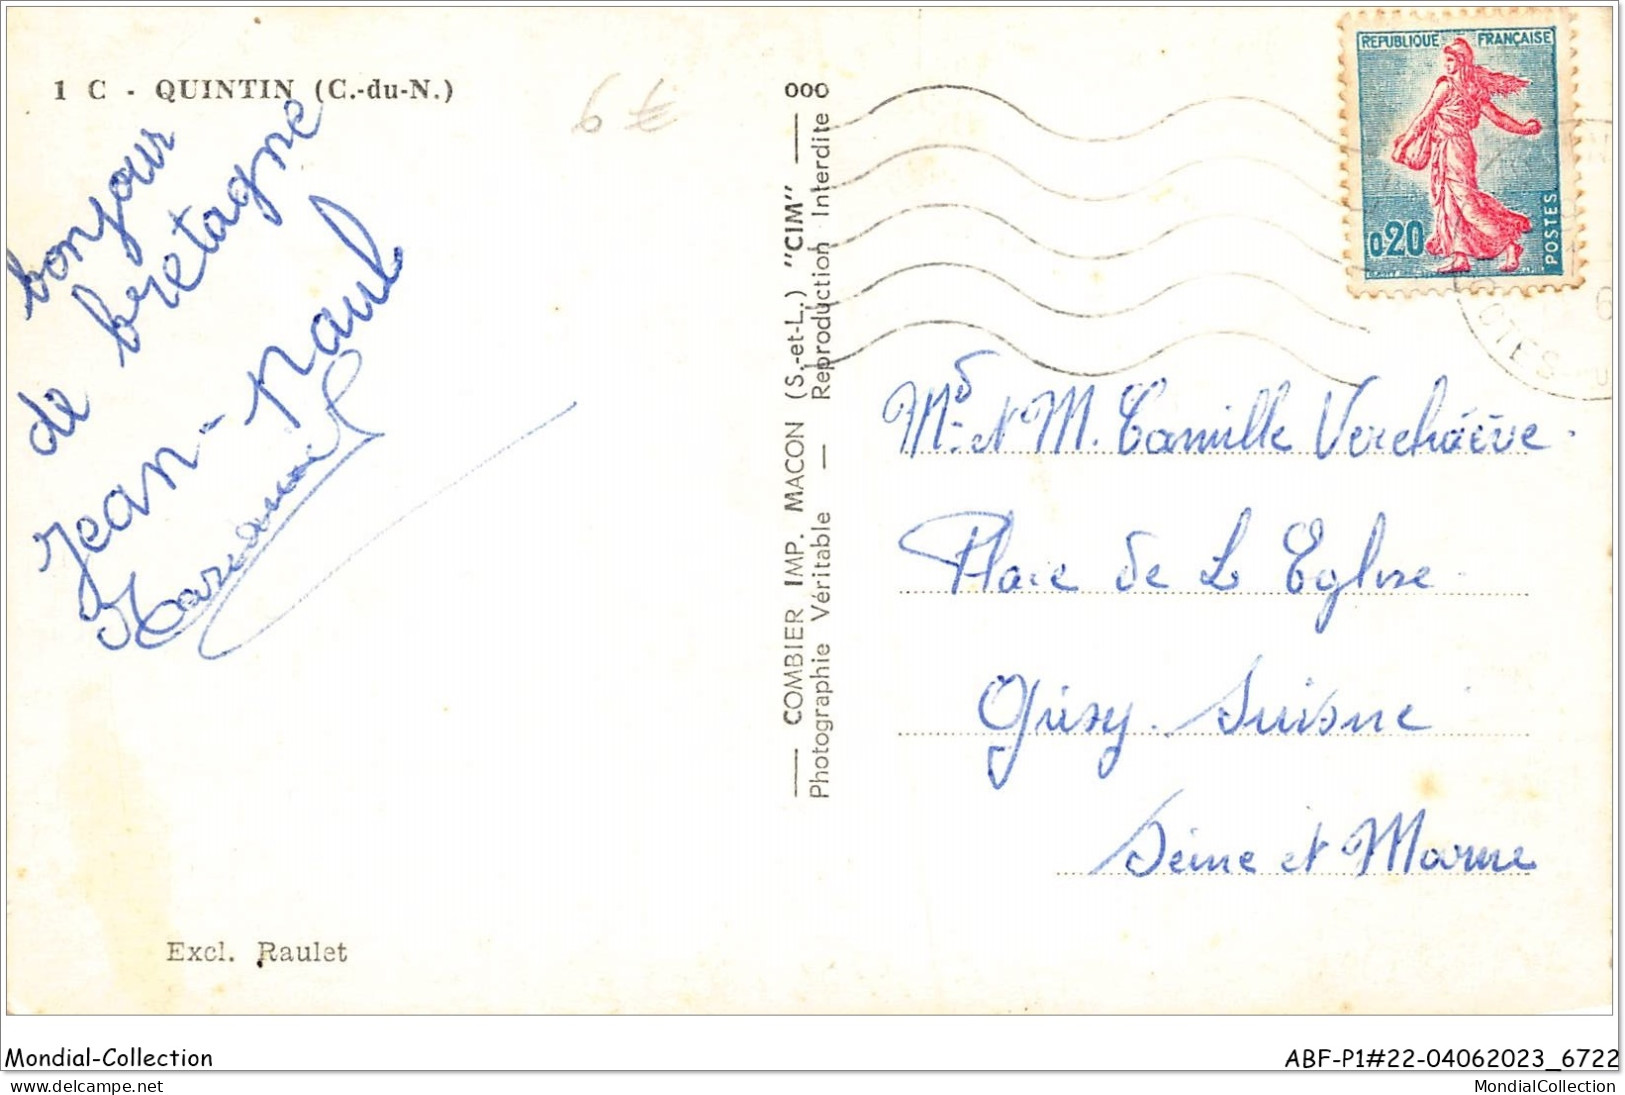 1 C - QUINTIN (C.-du-N.)
6 €
bonjour
de bretagne
Jean-Paul
COMBIER IMP. MACON (S.-et-L.) "CIM"
Photographie Véritable — Reproduction Interdite
REPUBLIQUE FRANÇAISE
0,20
POSTES
Md et M. Camille Verchaève.
Place de L Eglise
Grisy-Suisne
Seine et Marne
Excl. Raulet
Mondial-Collection
ABF-P1#22-04062023_6722
www.delcampe.net
MondialCollection